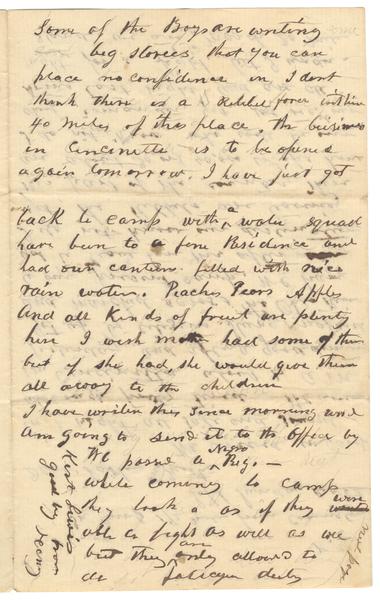 Some of the Boys are writing
big storees that you can
place no confidence in I dont
think there is a Rebbel force within
40 miles of this place, the buisness
in Cincinette is to be opened
again tomorrow, I have just got
back to camp with a water squad
have been to a fine Residence and
had our canteens filled with nice
rain waters. Peaches Pears Apples
and all kinds of fruit are plenty
here I wish mother had some of them
but if she had, she would give them
all away to the children
I have writen this since morning and
am going to send it to the office by
We passed a Negro Rig. —
while comeing to camp
they look a as if they were
able to fight as well as we
but they are only allowed to
do fatiegue duty
good by from